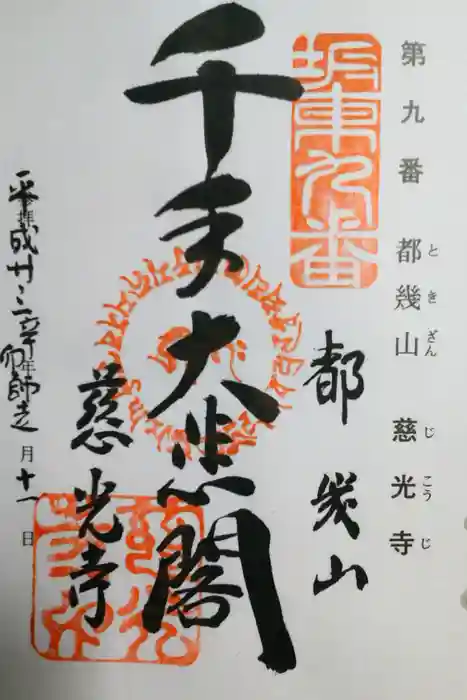 第九番 都幾山 慈光寺
とき ざん じ こう じ
坂東九番
都幾山
千手大悲閣
慈光寺
平成廿三辛卯年師走月十一日